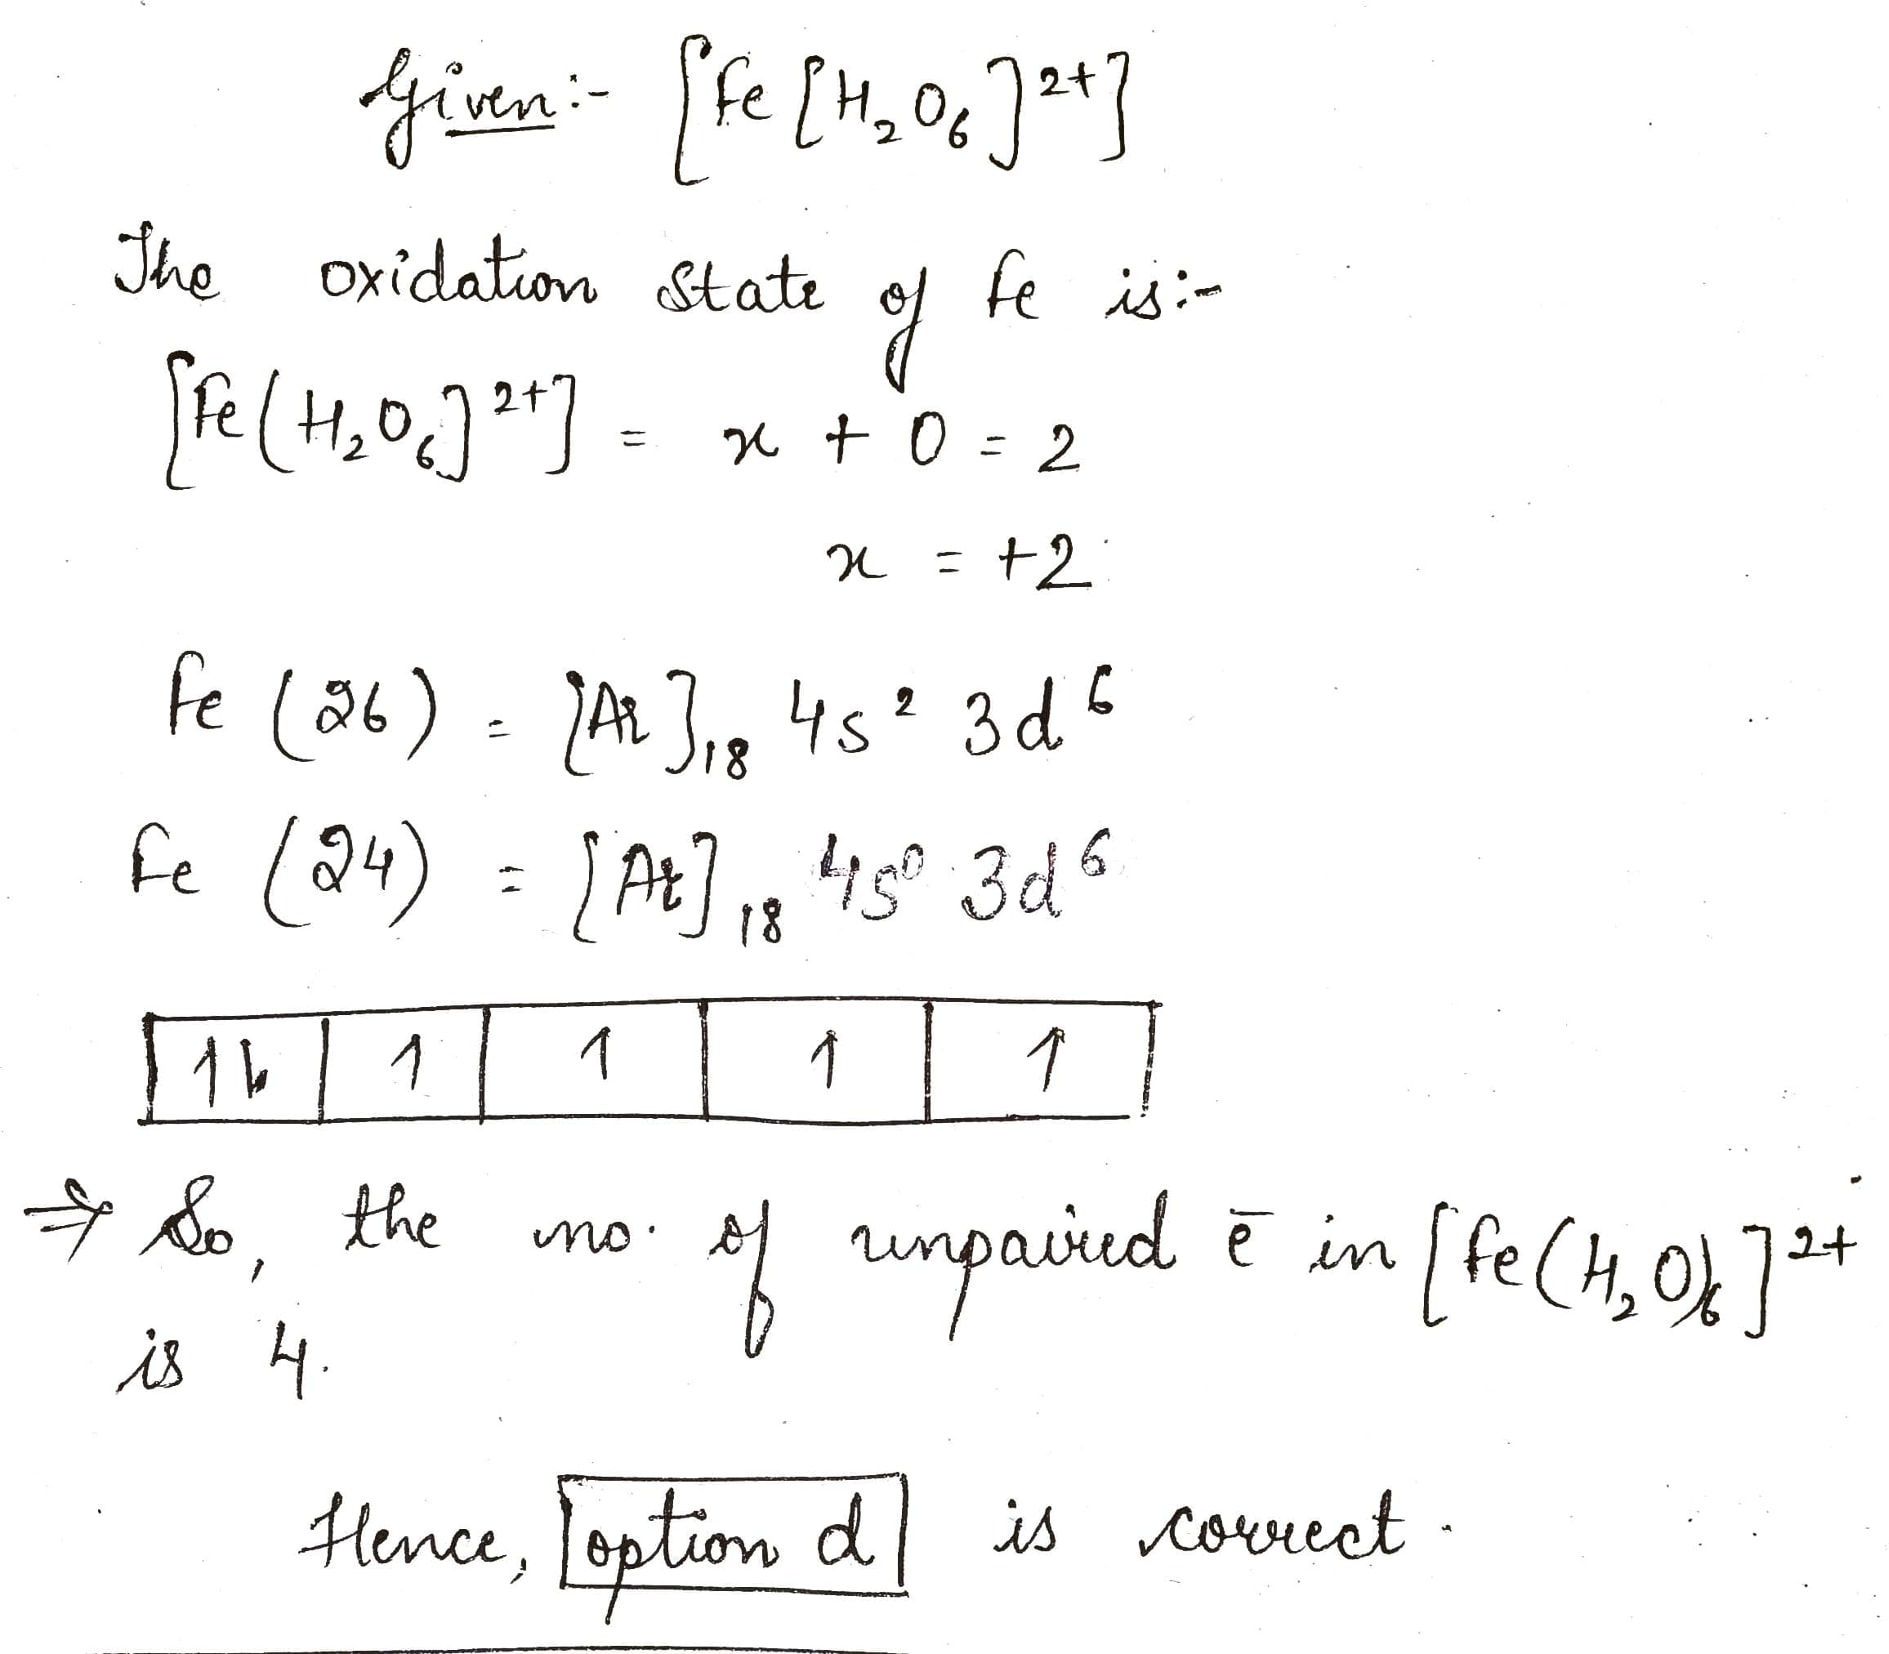 Given:- [Fe [H₂O₆]²⁺]
The oxidation State of Fe is:-
[Fe(H₂O₆]²⁺] = x + 0 = 2
x = +2
Fe (26) = [Ar]₁₈ 4s² 3d⁶
Fe (24) = [Ar]₁₈ 4s⁰ 3d⁶
1l 1 1 1 1
⇒ So, the no. of unpaired ē in [Fe(H₂O)₆]²⁺
is 4.
Hence, option d is correct.